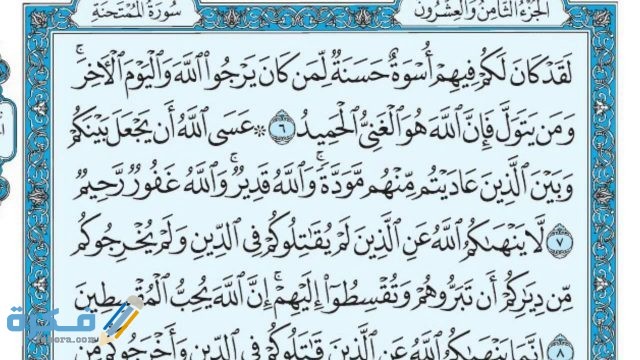 الجزء الثامن والعشرون
سورة الممتحنة
لَقَدْ كَانَ لَكُمْ فِيهِمْ أُسْوَةٌ حَسَنَةٌ لِّمَن كَانَ يَرْجُوا۟ ٱللَّهَ وَٱلْيَوْمَ ٱلْـَٔاخِرَ ۚ
وَمَن يَتَوَلَّ فَإِنَّ ٱللَّهَ هُوَ ٱلْغَنِىُّ ٱلْحَمِيدُ ٦ ۞ عَسَى ٱللَّهُ أَن يَجْعَلَ بَيْنَكُمْ
وَبَيْنَ ٱلَّذِينَ عَادَيْتُم مِّنْهُم مَّوَدَّةً ۚ وَٱللَّهُ قَدِيرٌ ۚ وَٱللَّهُ غَفُورٌ رَّحِيمٌ
٧ لَّا يَنْهَىٰكُمُ ٱللَّهُ عَنِ ٱلَّذِينَ لَمْ يُقَـٰتِلُوكُمْ فِى ٱلدِّينِ وَلَمْ يُخْرِجُوكُم
مِّن دِيَـٰرِكُمْ أَن تَبَرُّوهُمْ وَتُقْسِطُوٓا۟ إِلَيْهِمْ ۚ إِنَّ ٱللَّهَ يُحِبُّ ٱلْمُقْسِطِينَ
إِنَّمَا يَنْهَىٰكُمُ ٱللَّهُ عَنِ ٱلَّذِينَ قَـٰتَلُوكُمْ فِى ٱلدِّينِ وَأَخْرَجُوكُم مِّن